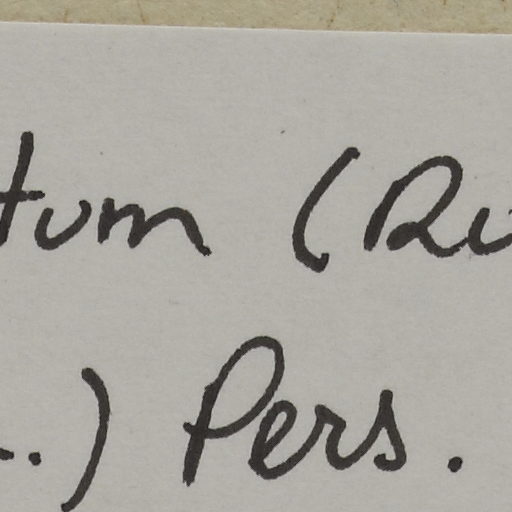 tum (Ru
..) Pers.